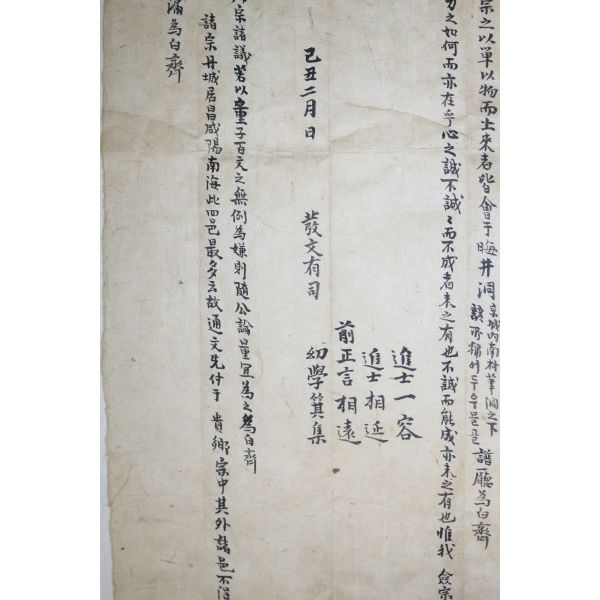 宗之以單以物而出來者皆會于晦井洞京城內南村筆洞之下譜廳為白齊
諺所稱어두우물골
力之如何而亦在乎心之誠不誠誠而不成者未之有也不誠而能成亦未之有也惟我 僉宗
進士一容
進士相延
前正言相遠
幼學箕集
發文有司
己丑二月日
宗諸議若以童子百文之無例為嫌則隨公論量宜為之為白齊
諸宗丹城居昌咸陽南海此四邑最多云故通文先付于 貴鄉宗中其外諸邑不得
滿為白齊